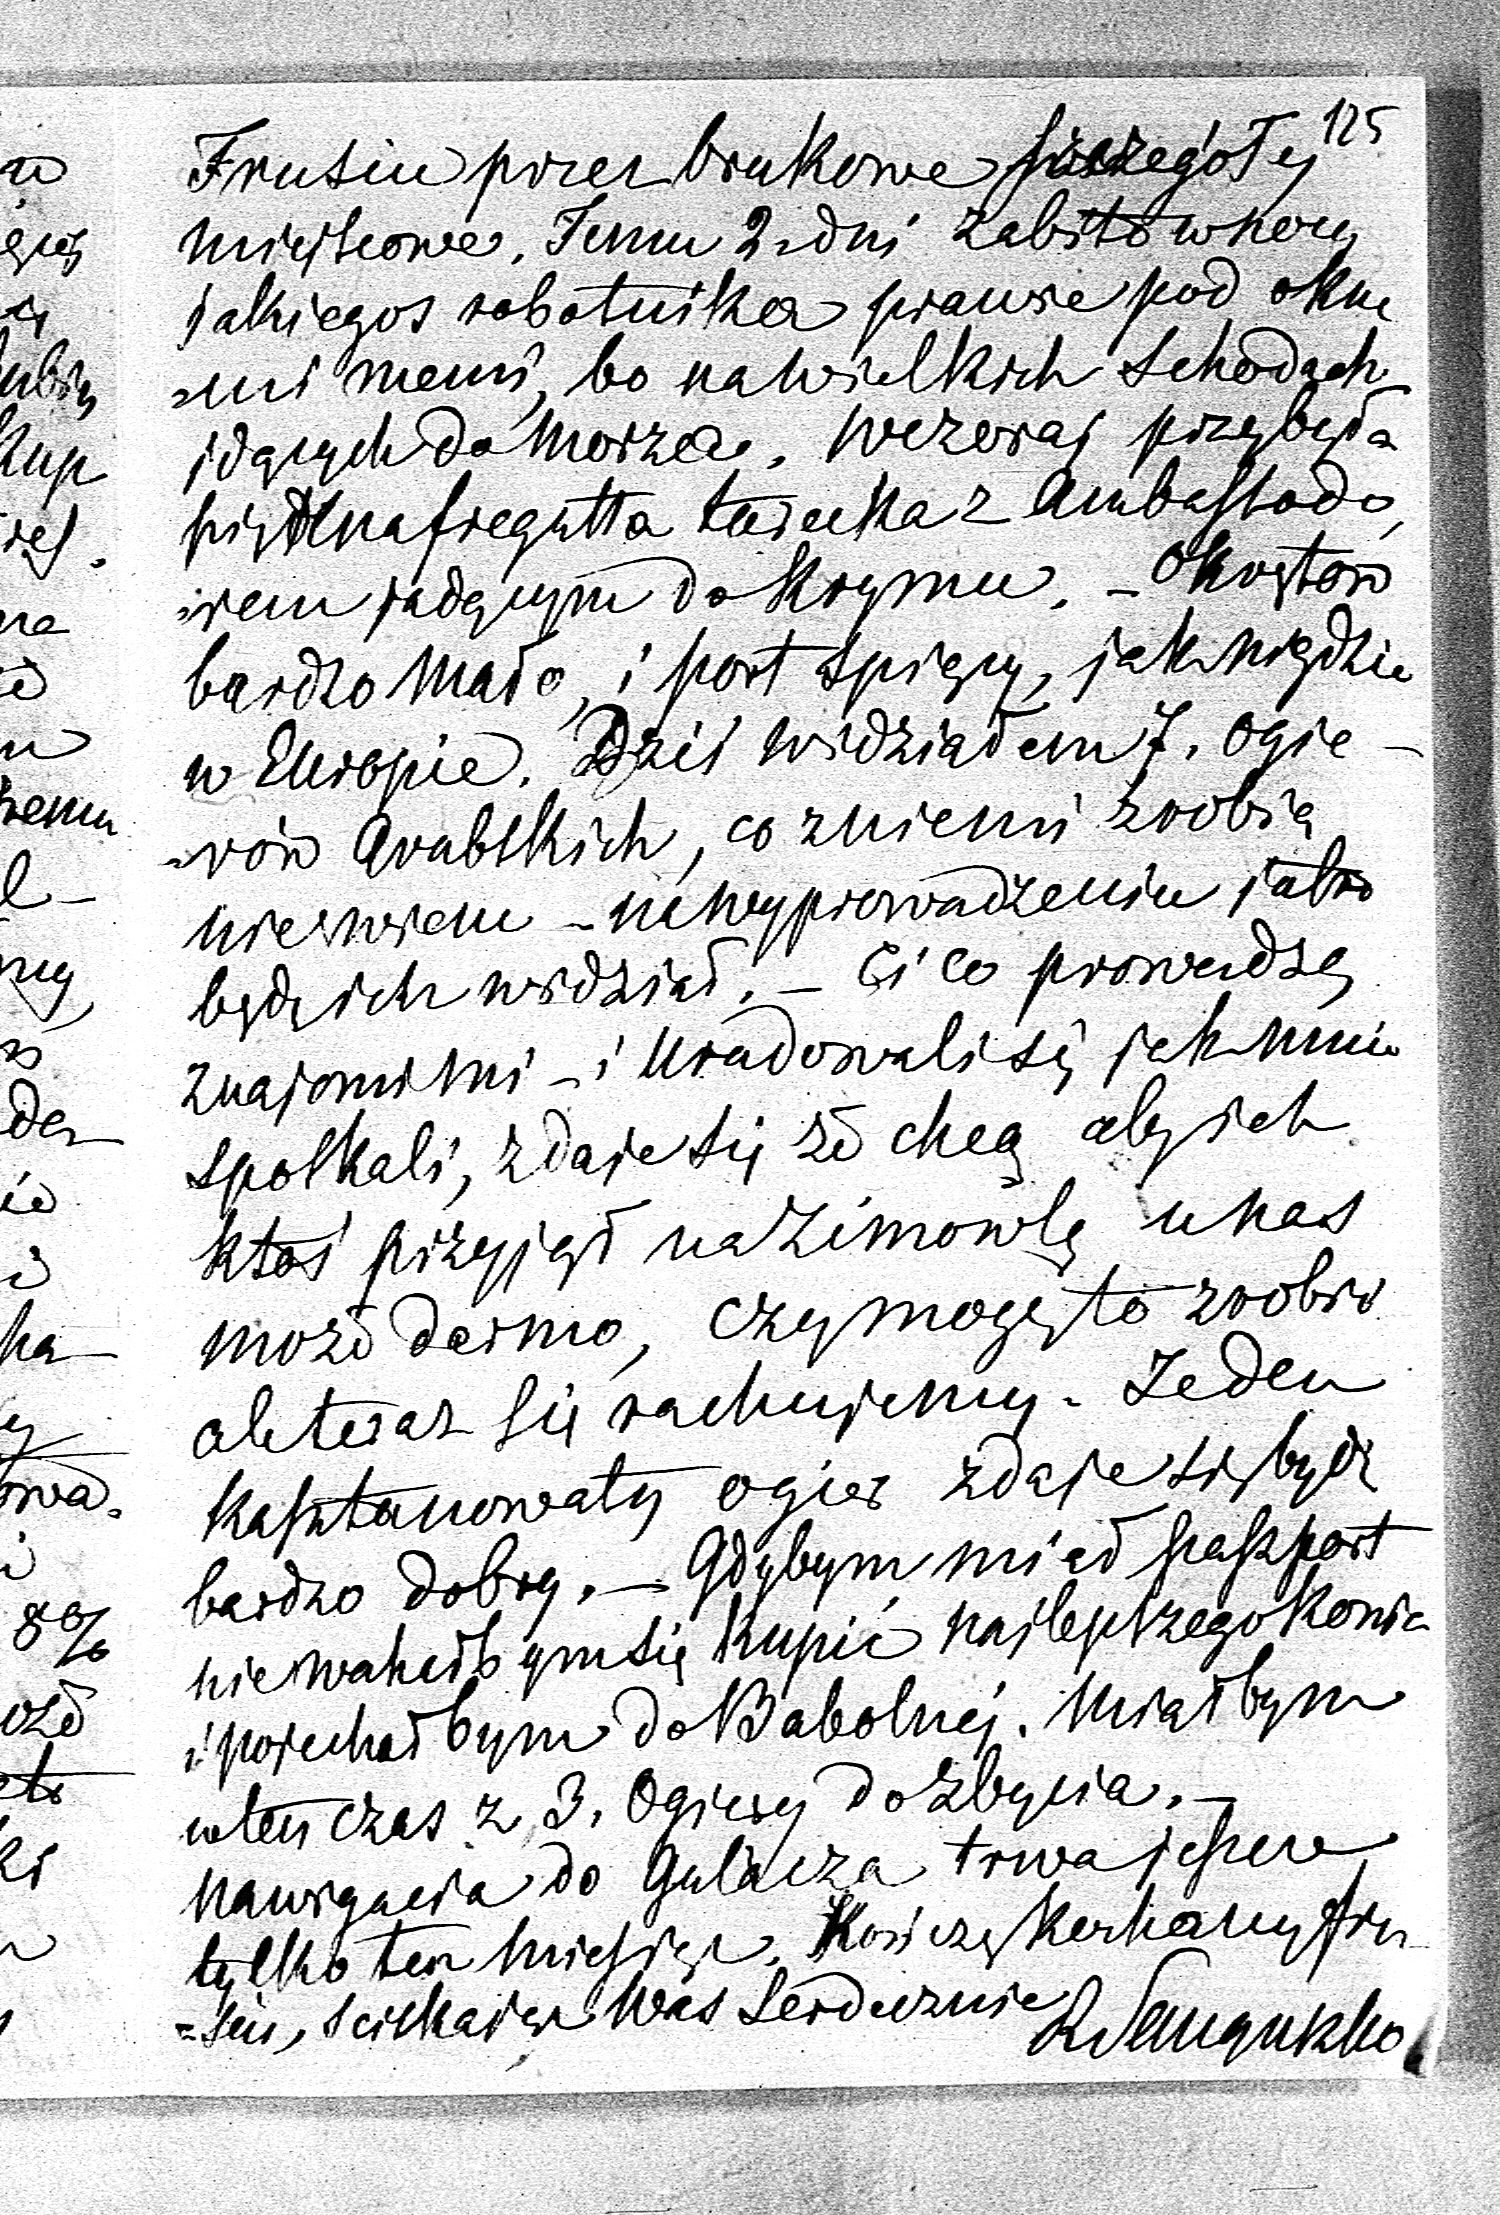 125
Frusiu przez brukowe szczegóły
miejscowe. Temu 2. dni zabito w nocy
jakiegos robotnika prawie pod okna
-mi memi, bo na wielkich schodach
idących do morza. Wczoraj przybyła
piękna fregatta turecka z Ambassado,
-rem jadącym do Krymu. - Okrętów
bardzo mało, i port spiący, jak nigdzie
w Europie. Dziś widziałem 7. ogie -
-rów Arabskich, co z niemi zrobią
nie wiem - na wyprowadzeniu jutro
będę ich widział. - Ci co prowadzą
znajomi mi - i uradowali się jak mnie
spotkali, zdaje się że chcą aby ich
ktoś przyjął na zimowlę u nas
może darmo, czy mogę to zrobić
ale teraz się rachujemy. Jeden
kasztanowaty ogier zdaje się być
bardzo dobry. - Gdybym miał paszport
nie wahałbym się kupić najlepszego konia
i pojechałbym do Babolnéj. Miałbym
wten czas z 3. Ogiery do zbycia. -
Nawigacia do Gałacza trwa jeszcze
tylko ten miesiąc. Kończę kochany Fru
=siu, sciskając Was serdecznie
RSanguszko